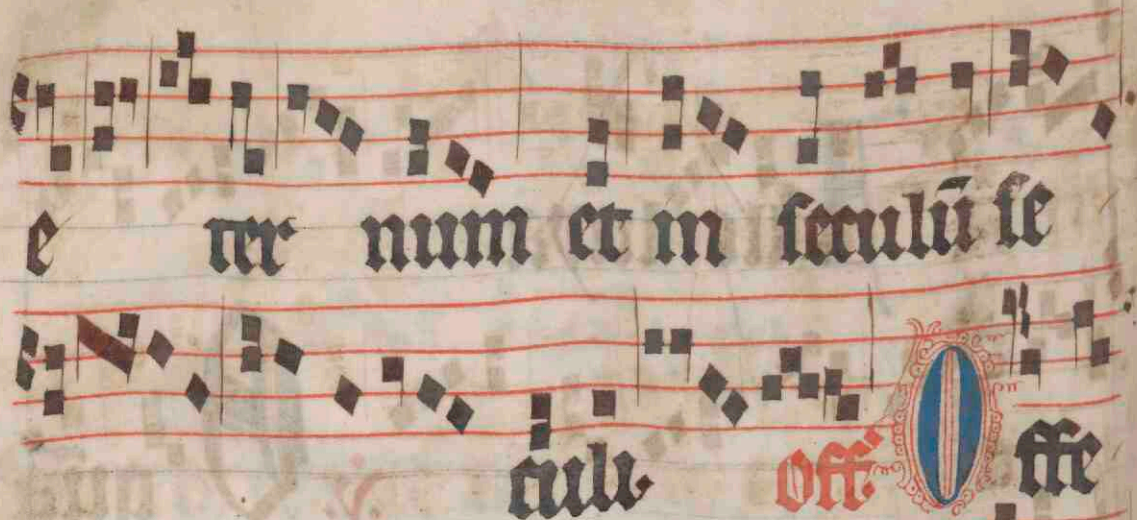 e ter num et in seculū se
culi. Off. Offe